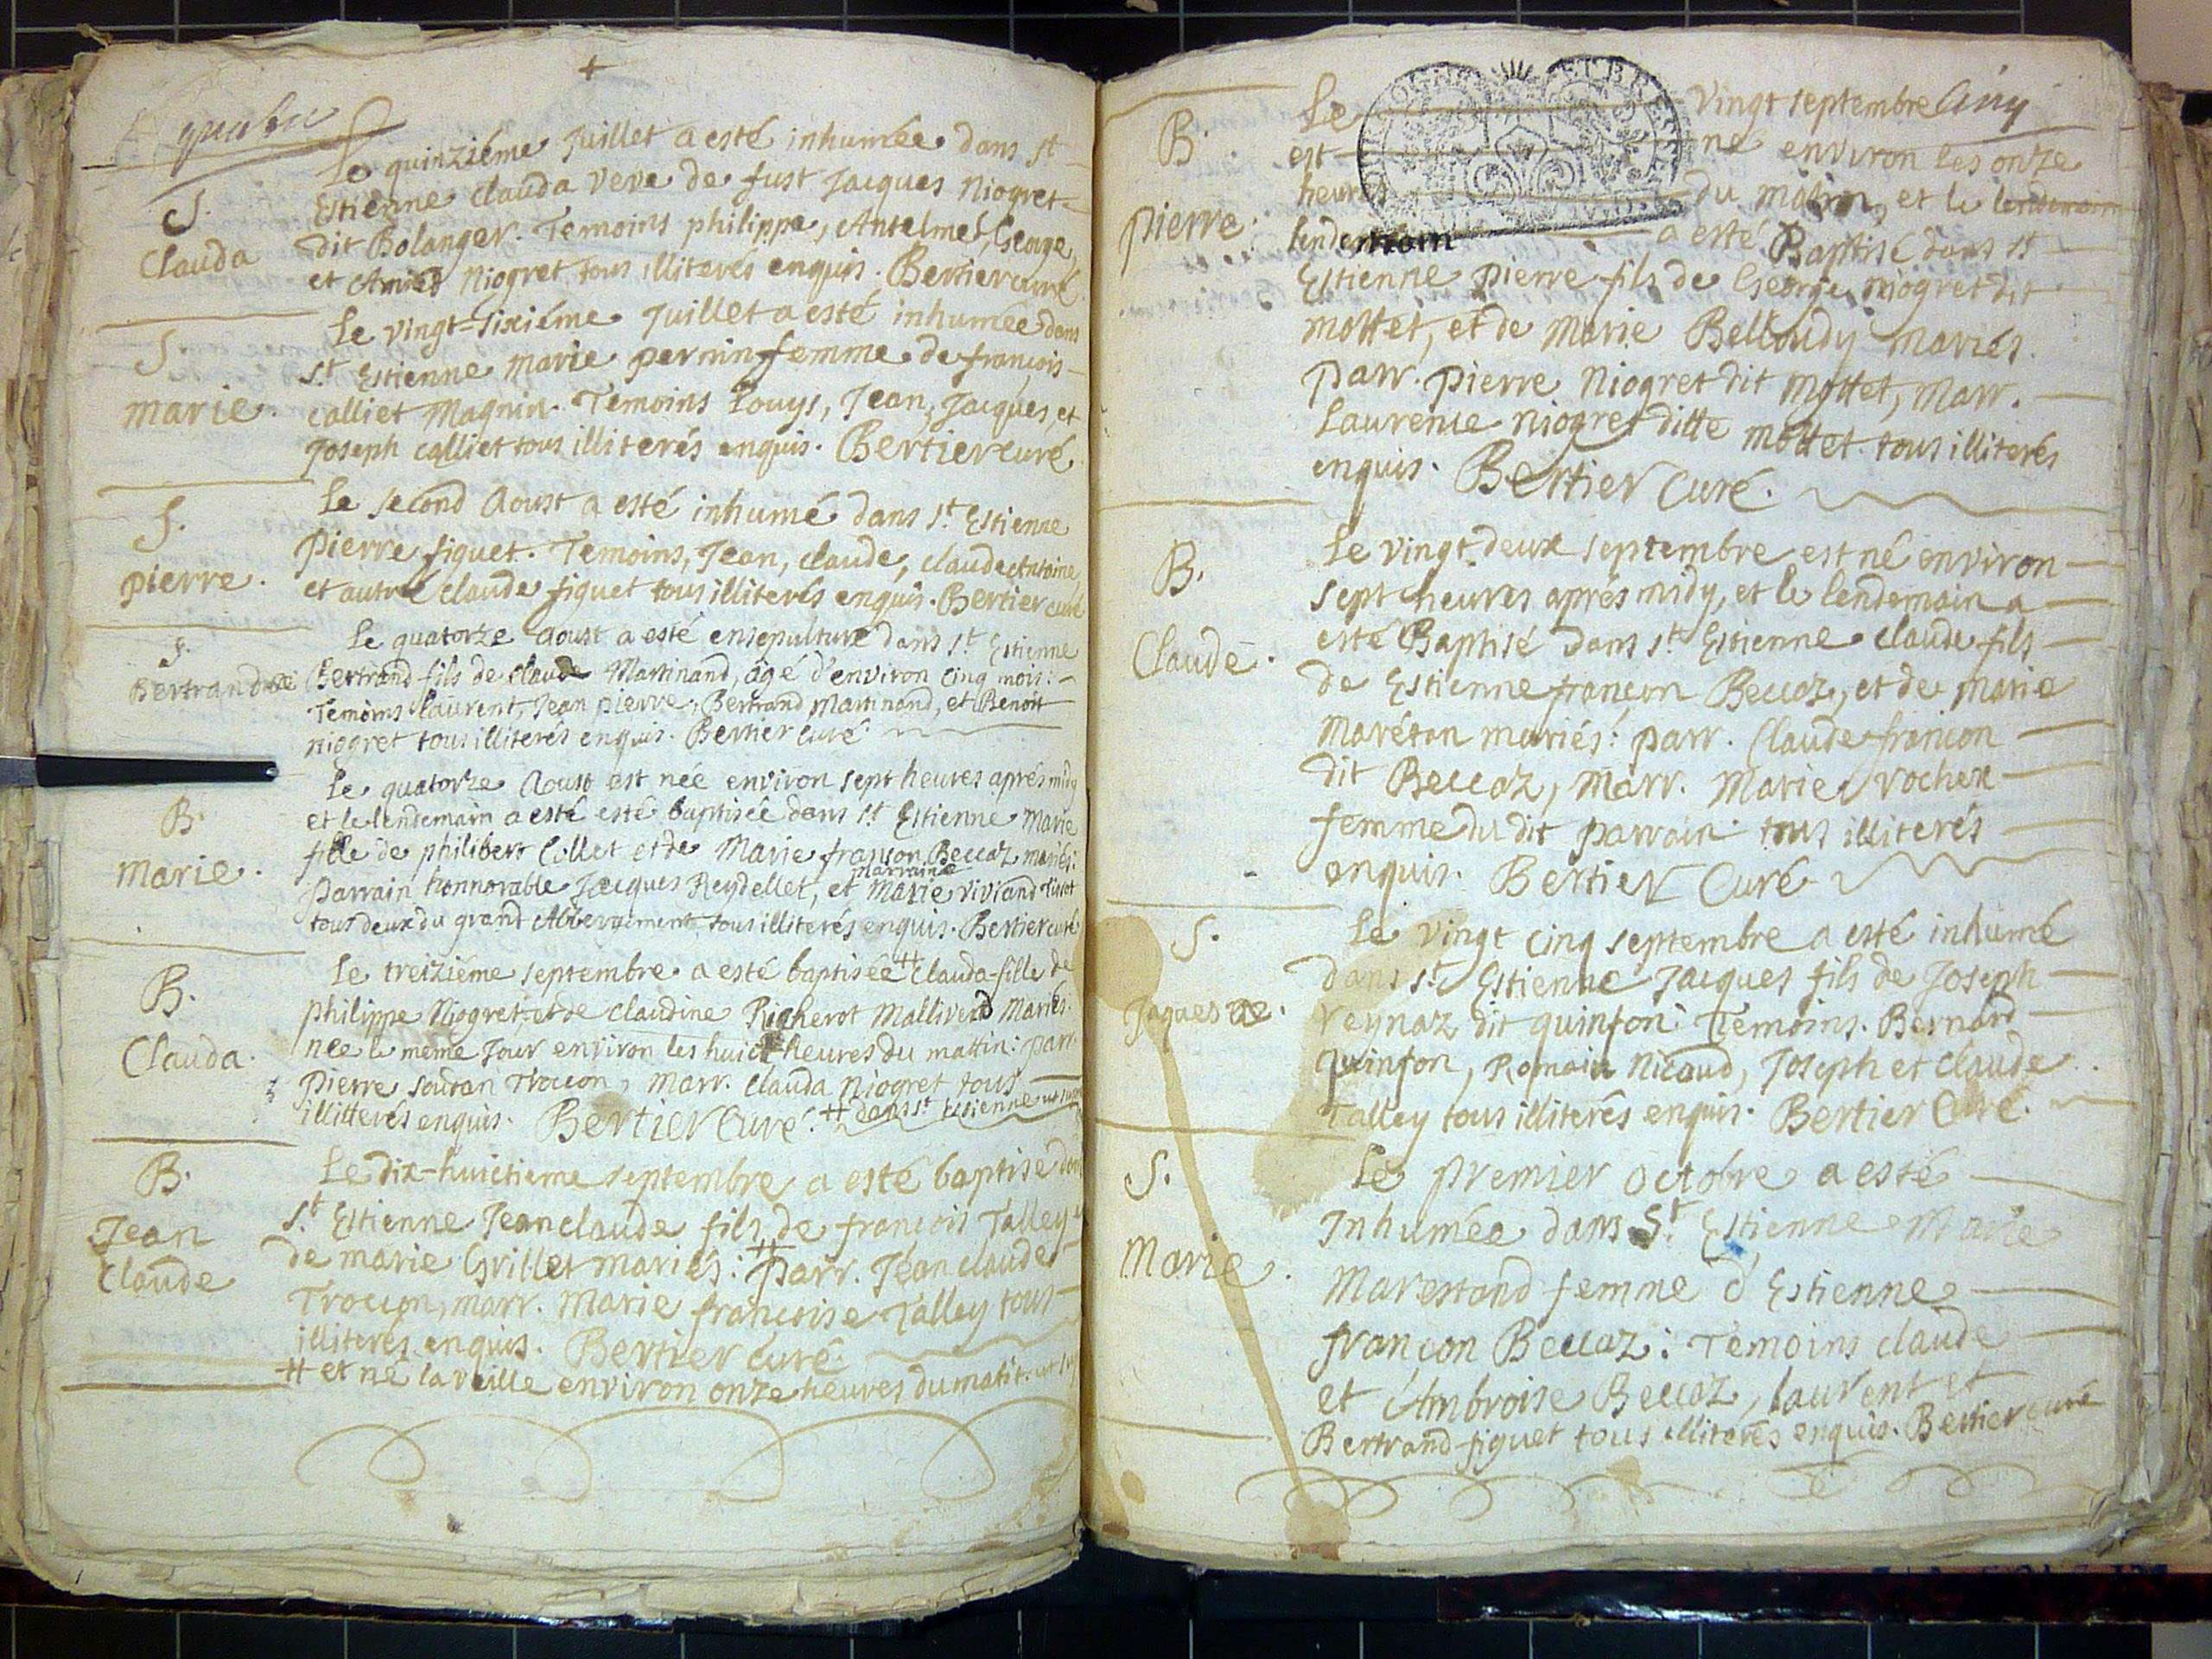 quatre
Le quinziéme Juillet a esté inhumée dans st
S. Clauda
Estienne Clauda veve de fust Jacques Niogret
dit Bolanger. Temoins philippe, Antelme, George,
et Amied Niogret, tous illiterés enquis. Bertier curé
Le vingt-sixiéme Juillet a esté inhumée dans
S. marie.
St Estienne marie pernin femme de françois
calliet Magnin. Temoins Louys, Jean, Jacques, et
Joseph calliet tous illiterés enquis. Bertier curé
Le second Aoust a esté inhumé dans St Estienne
S. pierre.
Pierre figuet. Temoins, Jean, claude, claude Antoine,
et autre claude figuet tous illiterés enquis. Bertier curé
Le quatorze Aoust a esté ensepulturé dans St Estienne
S. Bertrand
Bertrand fils de claude Martinand, âgé d'environ cinq mois:
Temoins laurent, Jean pierre, Bertrand Martinand, et Benoit
niogret tous illiterés enquis. Bertier curé
Le quatorze Aoust est née environ sept heures aprés midy
B. Marie.
et le lendemain a esté esté baptisée dans St Estienne Marie
fille de philibert Collet et de Marie françon Beccaz mariés:
marraine
Parrain honnorable Jacques Reydellet, et Marie Viviand Tissot
tous deux du grand Abbergement tous illiterés enquis. Bertier curé
Le treiziéme septembre a esté baptisée # Clauda fille de
B. Clauda.
philippe Niogret, et de claudine Righerot Mallivend Mariés.
née le meme Jour environ les huict heures du mattin: parr.
Pierre soutan Troccon, marr. clauda Niogret tous
illitterés enquis. Bertier Curé. # dans St Estienne
Le dix-huictieme septembre a esté baptisé dans
B. Jean Claude
St Estienne Jean claude fils de francois Talley
de marie Grillet mariés: # parr. Jean claude
Troccon, marr. Marie françoise Talley tous
illiterés enquis. Bertier curé
# et né la veille environ onze heures du matin.
Le vingt septembre Cinq
B. pierre.
est né environ les onze
heures du matin, et le lendemain
lendemain a esté Baptisé dans St
Estienne Pierre fils de George niogret dit
mottet, et de Marie Belloudy Mariés.
parr. pierre Niogret dit Mottet, Marr.
Laurence niogret ditte mottet. tous illiterés
enquis. Bertier Curé.
Le vingt-deux septembre est né environ
B. Claude.
sept heures aprés midy, et le lendemain a
esté Baptisé dans St Estienne claude fils
de Estienne françon Beccaz, et de marie
Maréton mariés: parr. Claude françon
dit Beccaz, Marr. Marie Rochex
femme du dit parrain. tous illiterés
enquis. Bertier Curé
Le vingt cinq septembre a esté inhumé
S. Jaques
dans St Estienne Jacques fils de Joseph
Veynaz dit quinson: Temoins. Bernard
quinson, Romain Nicoud, Joseph et claude
Talley tous illiterés enquis. Bertier Curé.
Le premier octobre a esté
S. Marie.
Inhumée dans St Estienne Marie
Marestand femme d'Estienne
françon Beccaz: Temoins claude
et Ambroise Beccaz, laurent et
Bertrand figuet tous illiterés enquis. Bertier curé